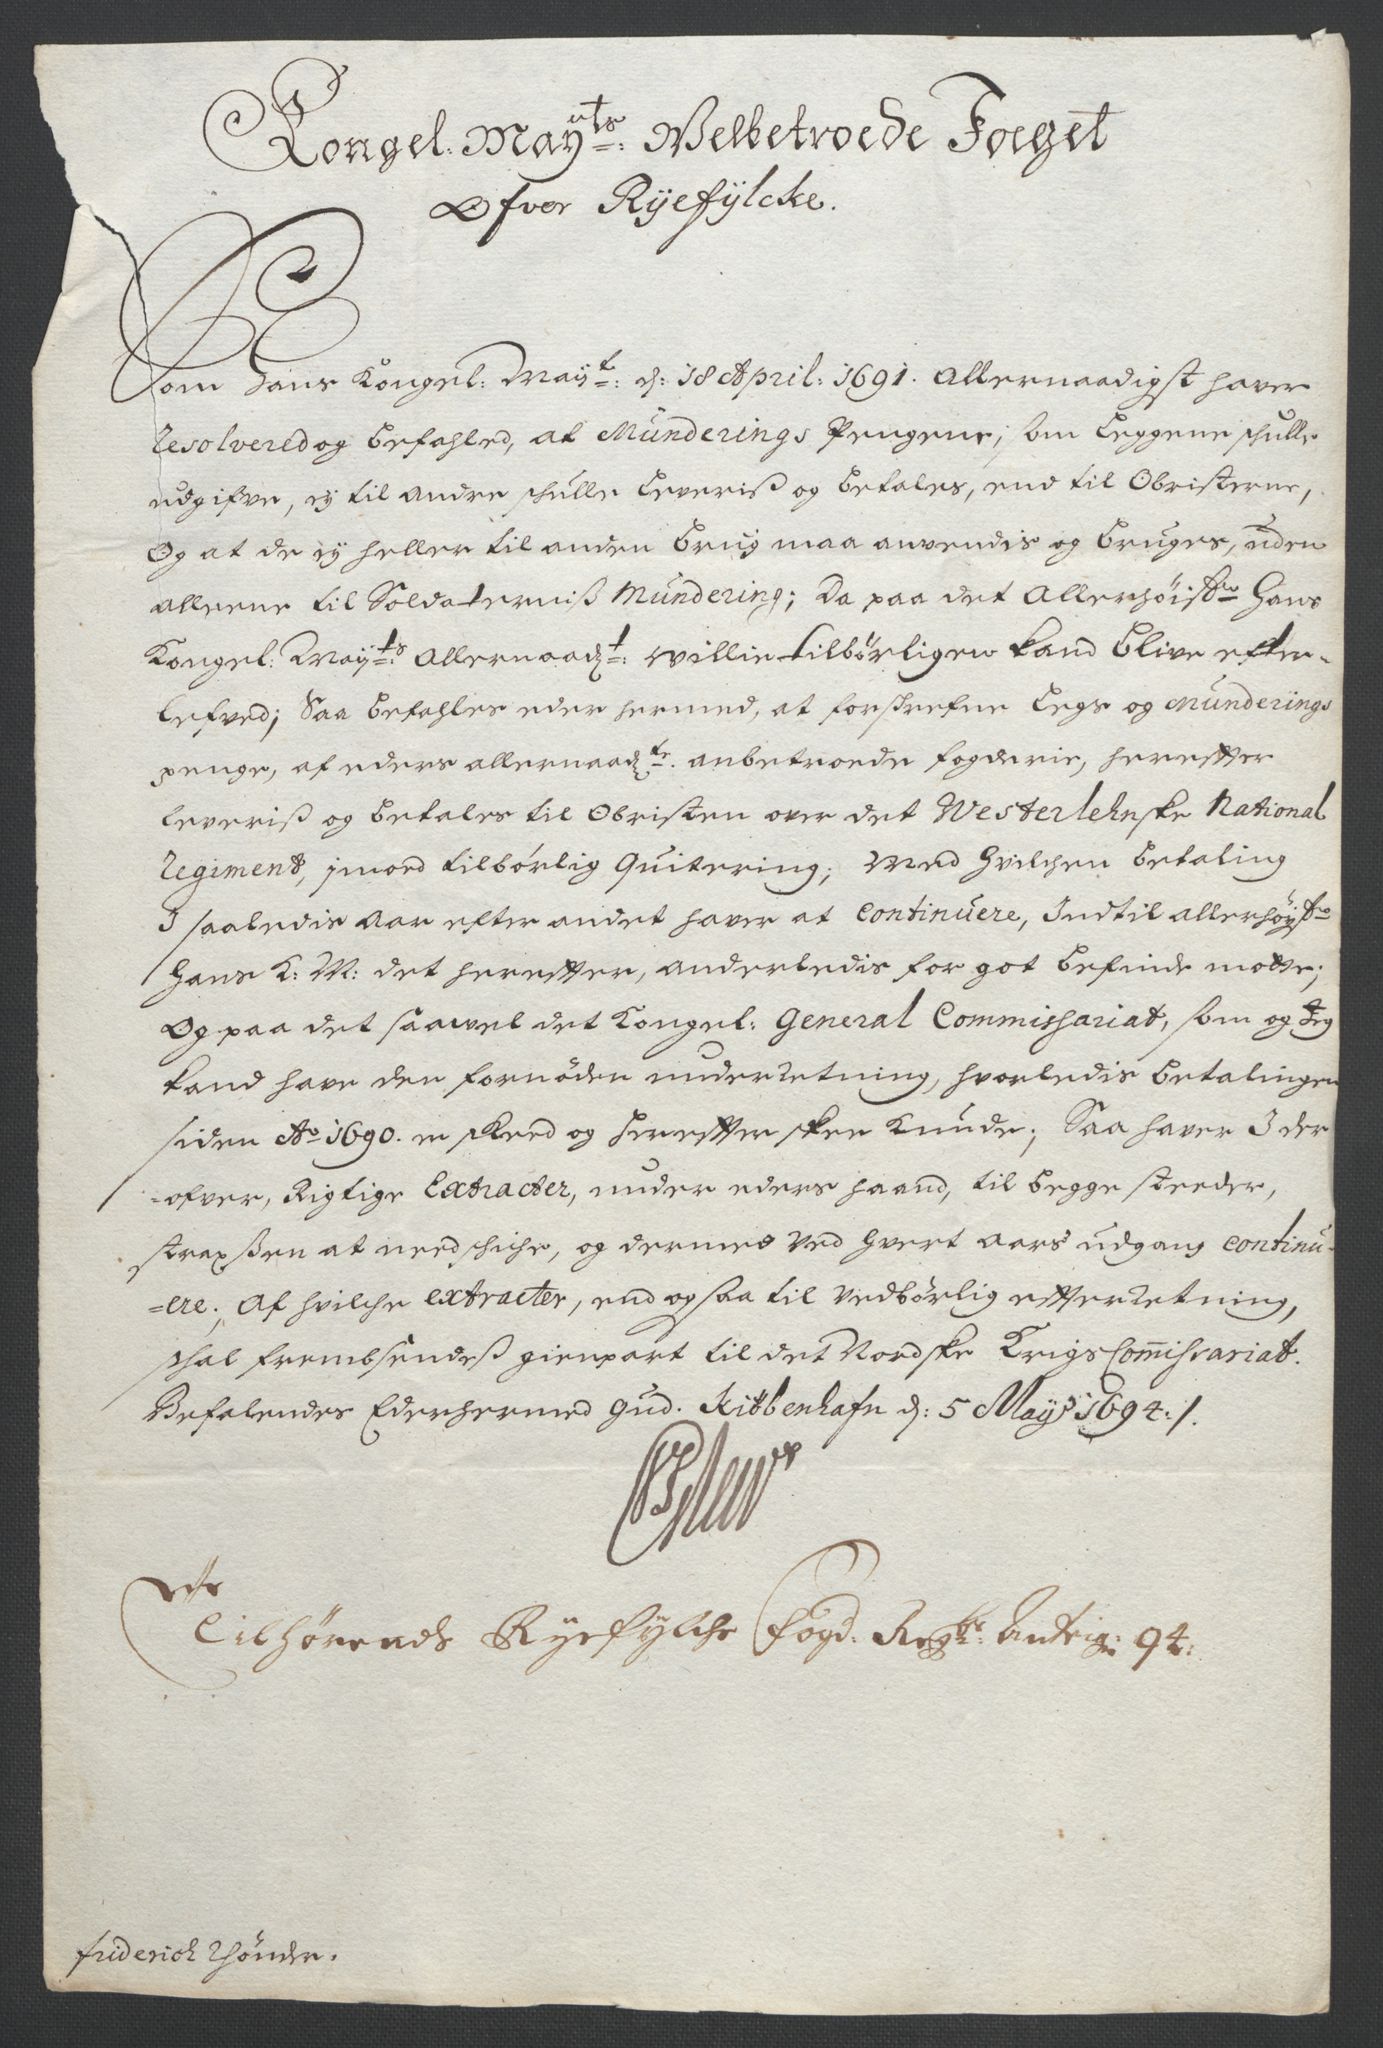 Kongel: Mayts: Velbetroede Foeget
Ofver Ryefylcke.
Som Hans Kongel: Mayt: d: 18 April: 1691. Allernaadigst haver
resolvered og befahled, at Munderings Pengene, som Leggene schulle
udgifve, ey til andre schulle leveriß og betales, end til Obristerne,
Og at de ey heller til anden brug maa anvendis og bruges, uden
alleene til Soldaterniß Mundering; Da paa det Allerhöistbe Hans
Kongel: Mayts: Allernaadt: villie tilbörligen kand blive efter-
lefved; Saa befahles eder hermed, at forskrefne Legs og Munderings
penge, af eders allernaadte. anbetroede fogderie, herefter
leveriß og betales til Obristen over det Westerlehnske National
Regiment, jmod tilbörlig Quitering; Med Hvilchen betaling
I saaledis Aar efter andet haver at continuere, Indtil allerhöystbe
Hans K: M: det herefter, anderledis for got befinde motte;
Og paa det saavel det Kongel: General Commissariat, som og Jeg
kand have den fornöden underretning, hvorledis betalingen
siden Ao 1690. er skeed og herefter skee kunde; Saa haver I der
-ofver, Rigtige Extracter, under eders haand, til begge steeder,
straxßen at needschiche, og dermed ved Hvert Aars udgang continu-
-ere; Af hvilche extracter, end og saa til Vedbörlig efterretning,
schal frembsendeß gienpart til det Nordske Krigs Commissariat.
Befalendes Eder hermed Gud. Kiöbenhafn d: 5 Maij 1694 ./.
Tilhörende Ryefylche Fogd: Regsk: Antrig: 94:
friderich Thönder.